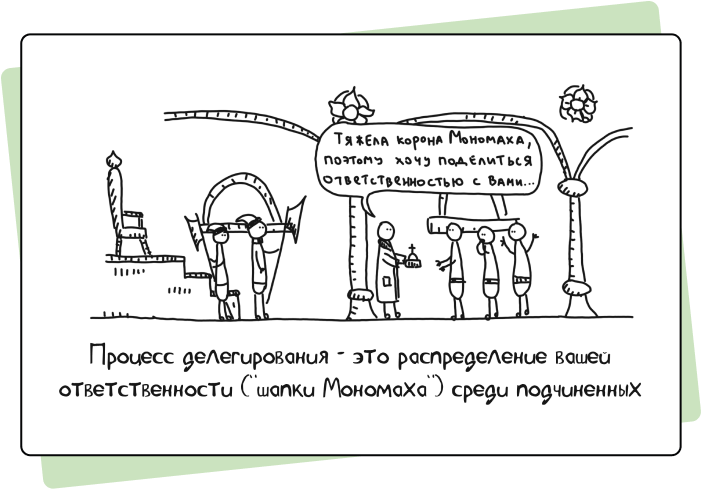 Тяжела корона Мономаха,
поэтому хочу поделиться
ответственностью с вами...
Процесс делегирования - это распределение вашей
ответственности ("шапки Мономаха") среди подчиненных